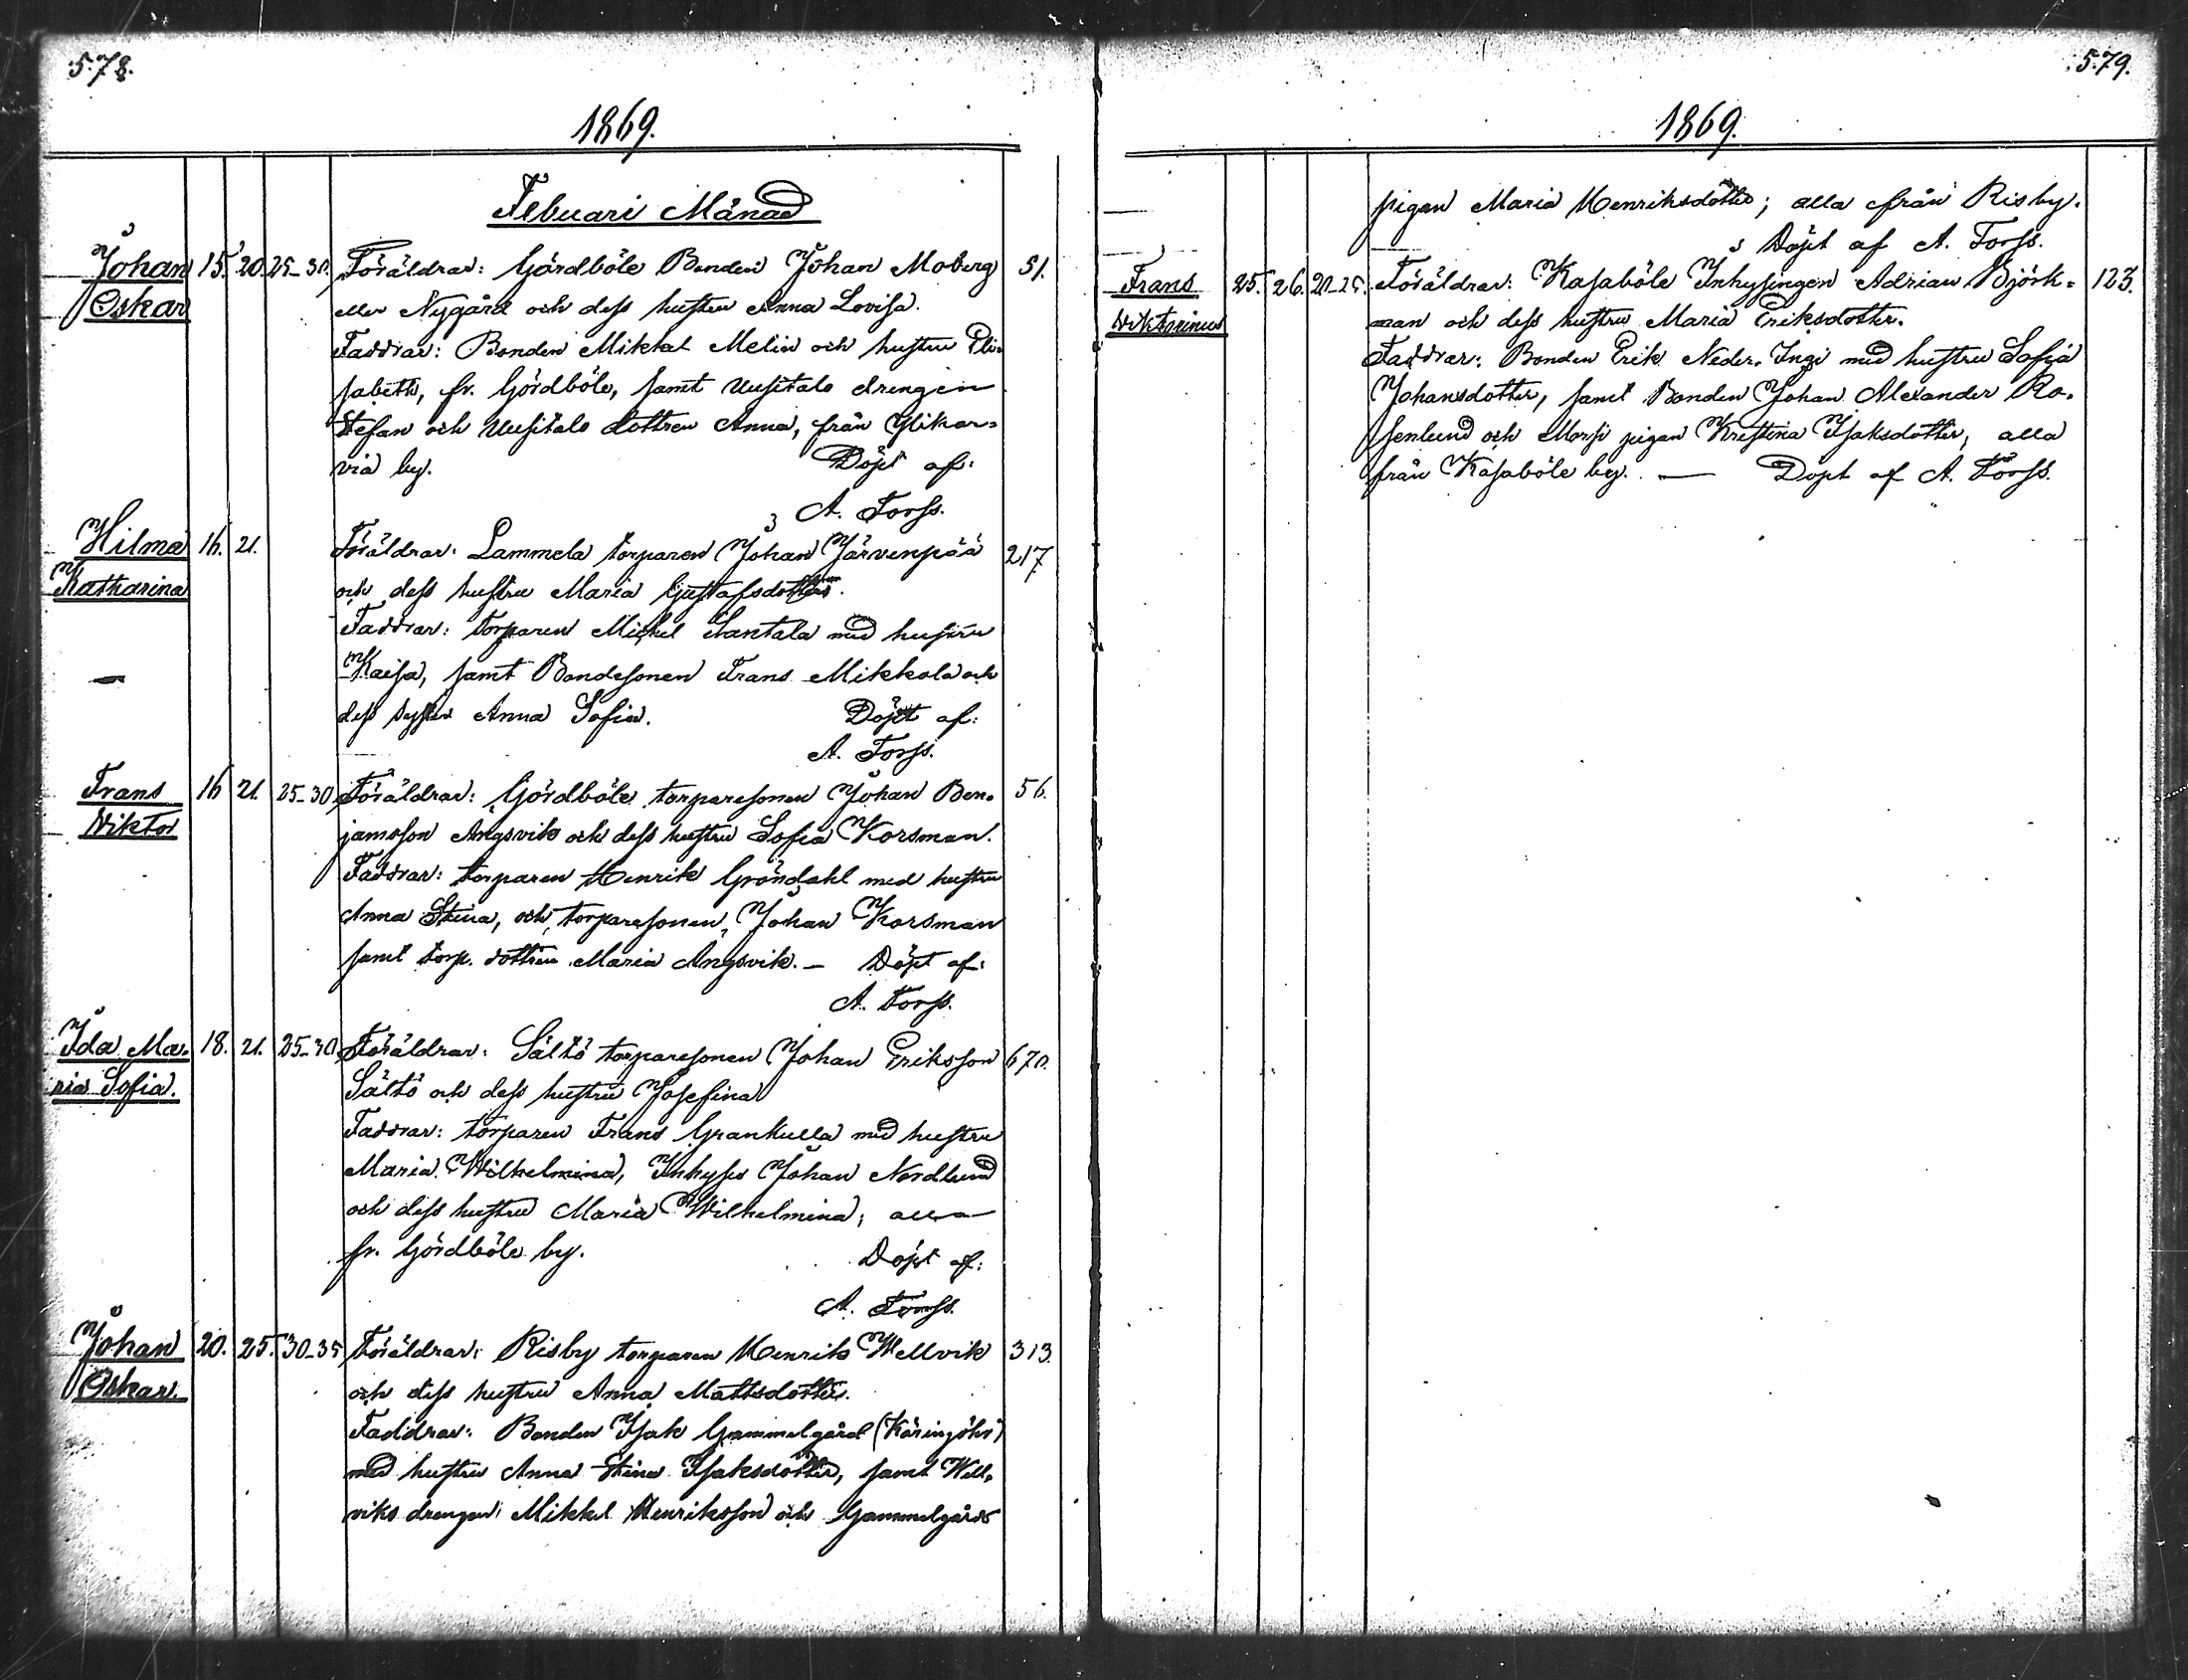 578.
1869.
Februari Månad
Johan 15. 20. 25-30. Föräldrar: Gårdböle Bonden Johan Moberg 51.
Oskar eller Nygård och dess hustru Anna Lovisa.
Faddrar: Bonden Mikkel Melin och hustru Eli-
sabeth, fr. Gårdböle, samt Uusitalo drengen
Stefan och Uusitalo dottren Anna, från Ylikar-
via by. Döpt af:
A. Forss.
Hilma 16. 21. Föräldrar: Lammela torparen Johan Järvenpää 217
Katharina och dess hustru Maria Gustafsdotter.
Faddrar: torparen Mickel Santala med hustru
Kaisa, samt Bondesonen Frans Mikkola och
dess syster Anna Sofia. Döpt af:
A. Forss.
Frans 16 21. 25-30 Föräldrar: Gördböle torparesonen Johan Ben- 56.
Wiktor jamsson Ängsvik och dess hustru Sofia Korsman.
Faddrar: torparen Henrik Gröndahl med hustru
Anna Stina, och torparesonen, Johan Korsman
samt torp. dottren Maria Ängsvik. — Döpt af:
A. Forss.
Ida Ma- 18. 21. 25-30. Föräldrar: Sältö torparesonen Johan Eriksson 670.
ria Sofia. Sältö och dess hustru Josefina
Faddrar: torparen Frans Grankulla med hustru
Maria Wilhelmina, Inhyses Johan Nordlund
och dess hustru Maria Wilhelmina; alla
fr. Gördböle by. Döpt af:
A. Forss.
Johan 20. 25. 30-35 Föräldrar: Risby torparen Henrik Wellvik 313.
Oskar. och dess hustru Anna Mattsdotter.
Faddrar: Bonden Isak Gammelgård
med hustru Anna Stina Isaksdotter, samt Well-
viks drengen Mikkel Henriksson och Gammelgårds
579.
1869.
pigan Maria Henriksdotter; alla från Risby.
Döpt af A. Forss.
Frans 25. 26. 20-25. Föräldrar: Kasaböle Inhysingen Adrian Björk- 123.
Wiktorinus man och dess hustru Maria Eriksdotter.
Faddrar: Bonden Erik Neder-Ingi med hustru Sofia
Johansdotter, samt Bonden Johan Alexander Ro-
senlund och pigan Kristina Isaksdotter, alla
från Kasaböle by. — Döpt af A. Forss.